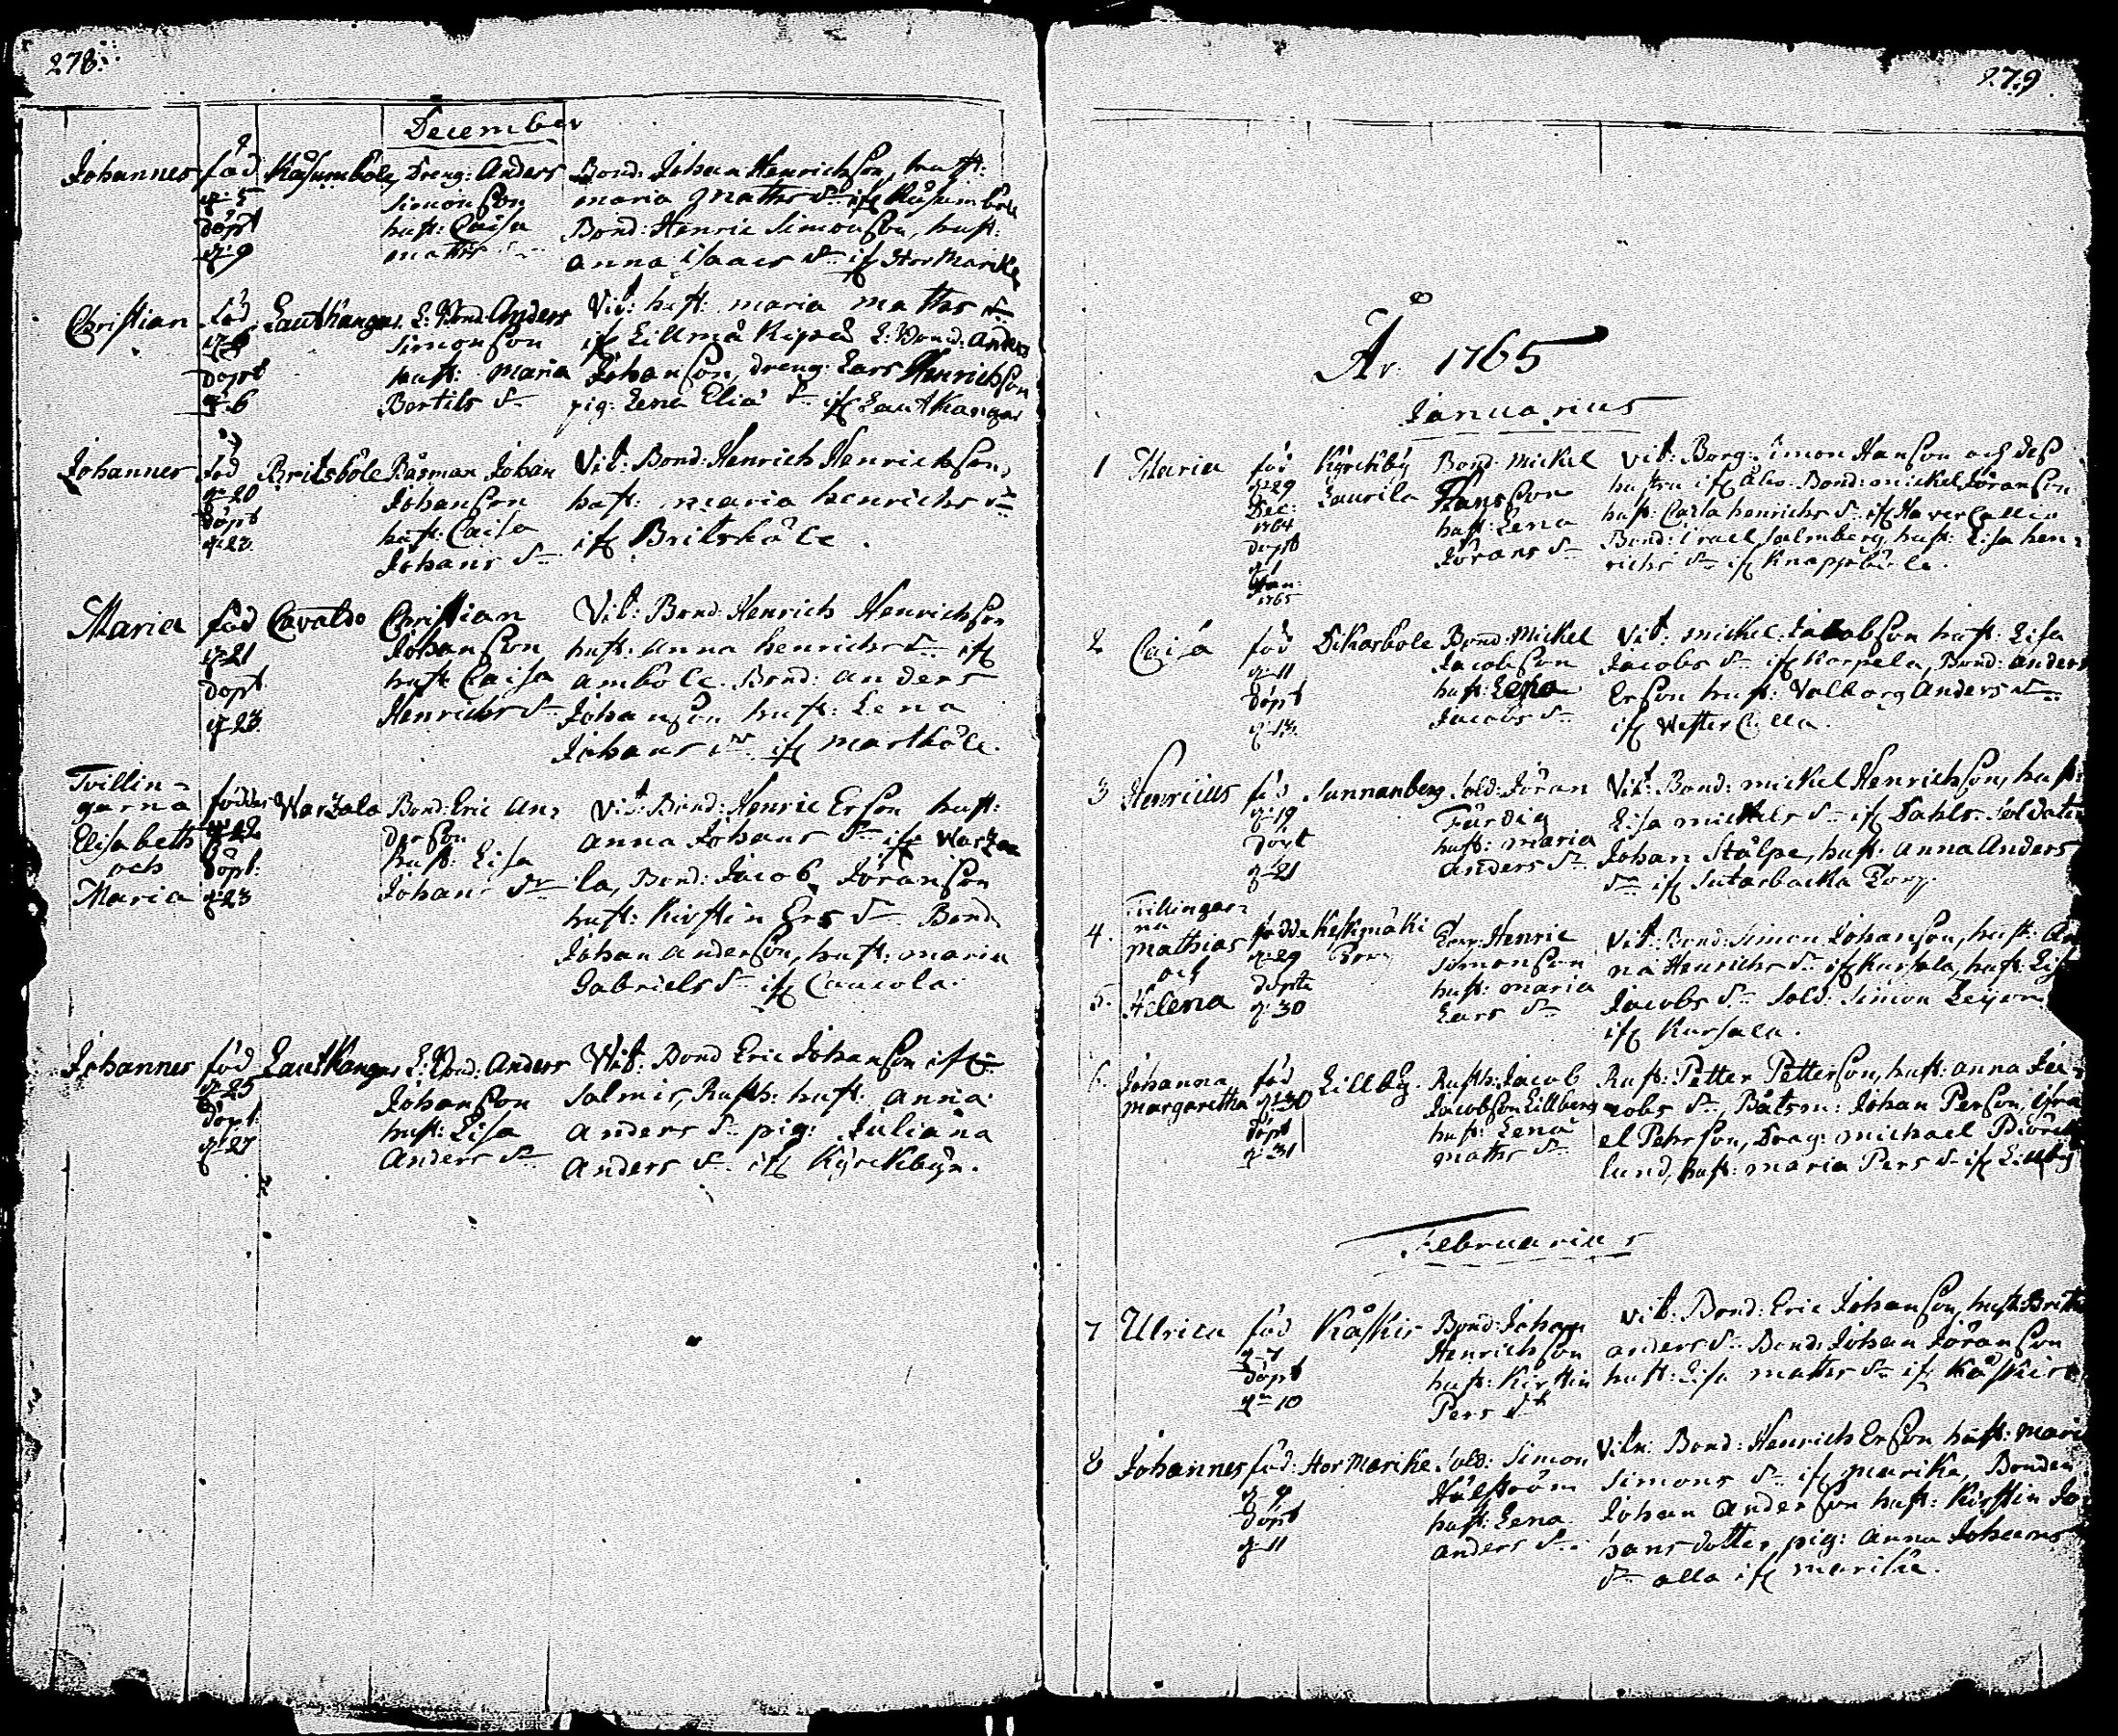 278.
December
Johannes
föd
d. 5
döpt
d. 9
Råsumböle
Dreng: Anders
Simonson
hust: Caisa
maths
Bond: Johan Henrichson, hust:
maria Maths dr
Bond: Henric Simonson, hust:
anna Isaacs dr if Stor Marike
Christian
föd
döpt
d. 6
Lautkangas
L: Bond: Anders
Simonson
hust: maria
Bertils dr
Vit: hust: maria maths dr
L: Bond: Anders
Johanson, dreng: Lars Henrichson
pig: Lena Eliæ dr if Lautkangas
Johannes
föd
d. 20
döpt
d. 23
Britsböle
Johan
Johanson
hust: Caisa
Johans dr
Vit: Bond: Henrich Henrichson,
hust: maria henrichs dr
if Britsböle.
Maria
föd
d. 21
döpt
d. 23.
Cavaldo
Christian
Johanson
hust: Caisa
Henrichs dr
Vit: Bond: Henrich Henrichson
hust: anna henrichs dr if
amböle. Bond: anders
Johanson hust: Lena
Johans dr if martböle.
Tvillin-
garna
Elisabeth
och
Maria
födde
d. 22
döpt:
d. 23
Warzala
Bond: Eric An-
derson
hust: Lisa
Johans dr
Vit: Bond: Henric Erson hust:
anna Johans dr if Warza
la, Bond: Jacob Jöranson
hust: Kirstin Ers dr Bond
Johan anderson, hust: maria
Gabriels dr if Caucola.
Johannes
föd
d. 25
döpt:
d. 27
Lautkangas
L: Bond: Anders
Johanson
hust: Lisa
Anders dr
Vit: Bond Eric Johanson if
Salmis, Rusth: hust: anna
anders dr pig: Juliana
Anders dr if Kyrckbyn.
279
År 1765
Januarius
1
Maria
föd
d. 29
Dec:
1764
döpt
d. 1
Jan:
1765
Kyrckby
Laurila
Bond: Mickel
Hansson
hust: Lena
Jörans dr
Vit: Borg: Simon Hanson och dess
hustru if Åbo. Bond: mickel Jöranson
hust: Carla henrichs dr
Bond: Israel Salmberg, hust: Lisa hen-
richs dr if Knappböle.
2
Caisa
föd
d. 11
döpt
d. 13.
Dikarböle
Bond: Mickel
Jacobson
hust: Lena
Jacobs dr
Vit: mickel Jacobson hust: Lisa
Jacobs dr if Korpela, Bond: anders
Erson hust: Valborg Anders dr
if Wester Culla.
3
Henricus
föd
d. 19
döpt
d. 21
Sunnanberg
Sold: Jöran
Färdig
hust: maria
anders dr
Vit: Bond: mickel Henrichson, hust:
Lisa mickels dr if Dahls. Soldaten
Johan Stålpe, hust: anna Anders
dr if Sutarbacka Torp.
4.
Tvillingar-
na
Mathias
och
5.
Helena
födde
d. 29
döpte
d. 30
Keskimäki
Torp
Torp: Henric
Simonson
hust: maria
Lars dr
Vit: Bond: Simon Johanson, hust: An
na Henrichs dr if Kursala, hust: Lisa
Jacobs dr Sold: Simon
if Kursala.
6.
Johanna
Margaretha
föd
d. 30
döpt
d. 31
Lillby.
Rusth: Jacob
Jacobson Lillberg
hust: Lena
maths dr
Rust: Petter Petterson, hust: anna Ja-
cobs dr, Båtsm: Johan Person, Isra
el Pehrson, Drag: michael Biörck
lund, hust: maria Pers dr if Lillby
Februarius
7
Ulrica
föd
d. 7
döpt
d. 10
Kåskis
Bond: Johan
Henrichson
hust: Kirstin
Pers dr
Vit: Bond: Eric Johanson, hust: Brita
anders dr Bond: Johan Jöranson
hust: Lisa maths dr if Kåskis
8
Johannes
föd:
d. 9
döpt
d. 11
Stor Marike
Sold: Simon
Hälström
hust: Lena
anders dr
Vitn: Bond: Henrich Erson hust: mari
Simons dr if marike, Bonden
Johan Anderson hust: Kirstin Jo
hans dotter, pig: anna Johans
dr alla if marike.